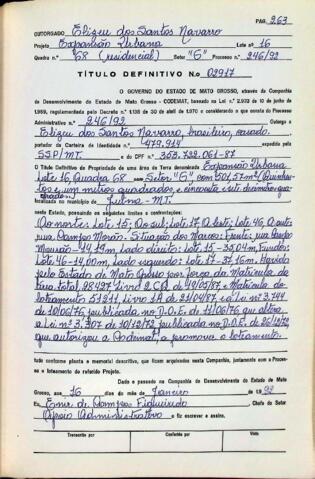 PÁG. 263
OUTORGADO Elizeu dos Santos Navarro
Projeto Expansão Urbana Lote nº 16
Quadra n.º 68 (residencial) Setor "G" Processo n.º 246/92
TÍTULO DEFINITIVO N.o 02917
O GOVERNO DO ESTADO DE MATO GROSSO, através da Companhia
de Desenvolvimento do Estado de Mato Grosso - CODEMAT, baseado na Lei n.º 2.933 de 10 de junho de
1969, regulamentada pelo Decreto N.º 1.138 de 30 de abril de 1970 e considerando o que consta do Processo
Administrativo n.º 246/92 Outorga a
Elizeu dos Santos Navarro, brasileiro, casado.
portador da Carteira de Identidade n.º 479.914 expedida pela
SSP/MT. e do CPF n.º 353.722.061-87
O Título Definitivo de Propriedade de uma área de Terra denominada Expansão Urbana
Lote 16, Quadra 68 Setor "G", com 501,57m² (Quinhen-
tos e um metros quadrados e cincoenta e sete decímetros qua-
drados)
localizada no município de Juína - MT.
neste Estado, possuindo os seguintes limites e confrontações:
Ao norte: Lote 15; Ao sul: Lote 17. A Leste: Lote 46, A oeste:
rua Campo Mourão. Situação dos Marcos: Frente: rua Campo
Mourão - 14,39m, Lado direito: Lote 15 - 35,04m, Fundos:
Lote 46 - 14,00m, Lado esquerdo: Lote 17 - 37,16m. Havida
pelo Estado de Mato Grosso por força da Matrícula da
área total, 98437 Livro 2 CQ de 49/05/87 e Matrícula do
loteamento 51211, Livro 1A de 21/04/87 e a Lei nº 3.744
de 10/06/76, publicada no D.O.E. de 11/06/76 que altera
a Lei nº 3.307 de 10/12/72 publicada no D.O.E. de 26/12/72
que autorizou a Codemat, a promover o loteamento.
tudo conforme planta e memorial descritivo, que ficam arquivados nesta Companhia, juntamente com o Proces-
so e loteamento do referido Projeto.
Dado e passado na Companhia de Desenvolvimento do Estado de Mato
Grosso, aos 16 dias do mês de Janeiro de 1.992
Eu, Enir de Campos Figueiredo, Chefe do Setor
Apoio Administrativo o fiz escrever e assino.
Transcrito por Conferido por Visto